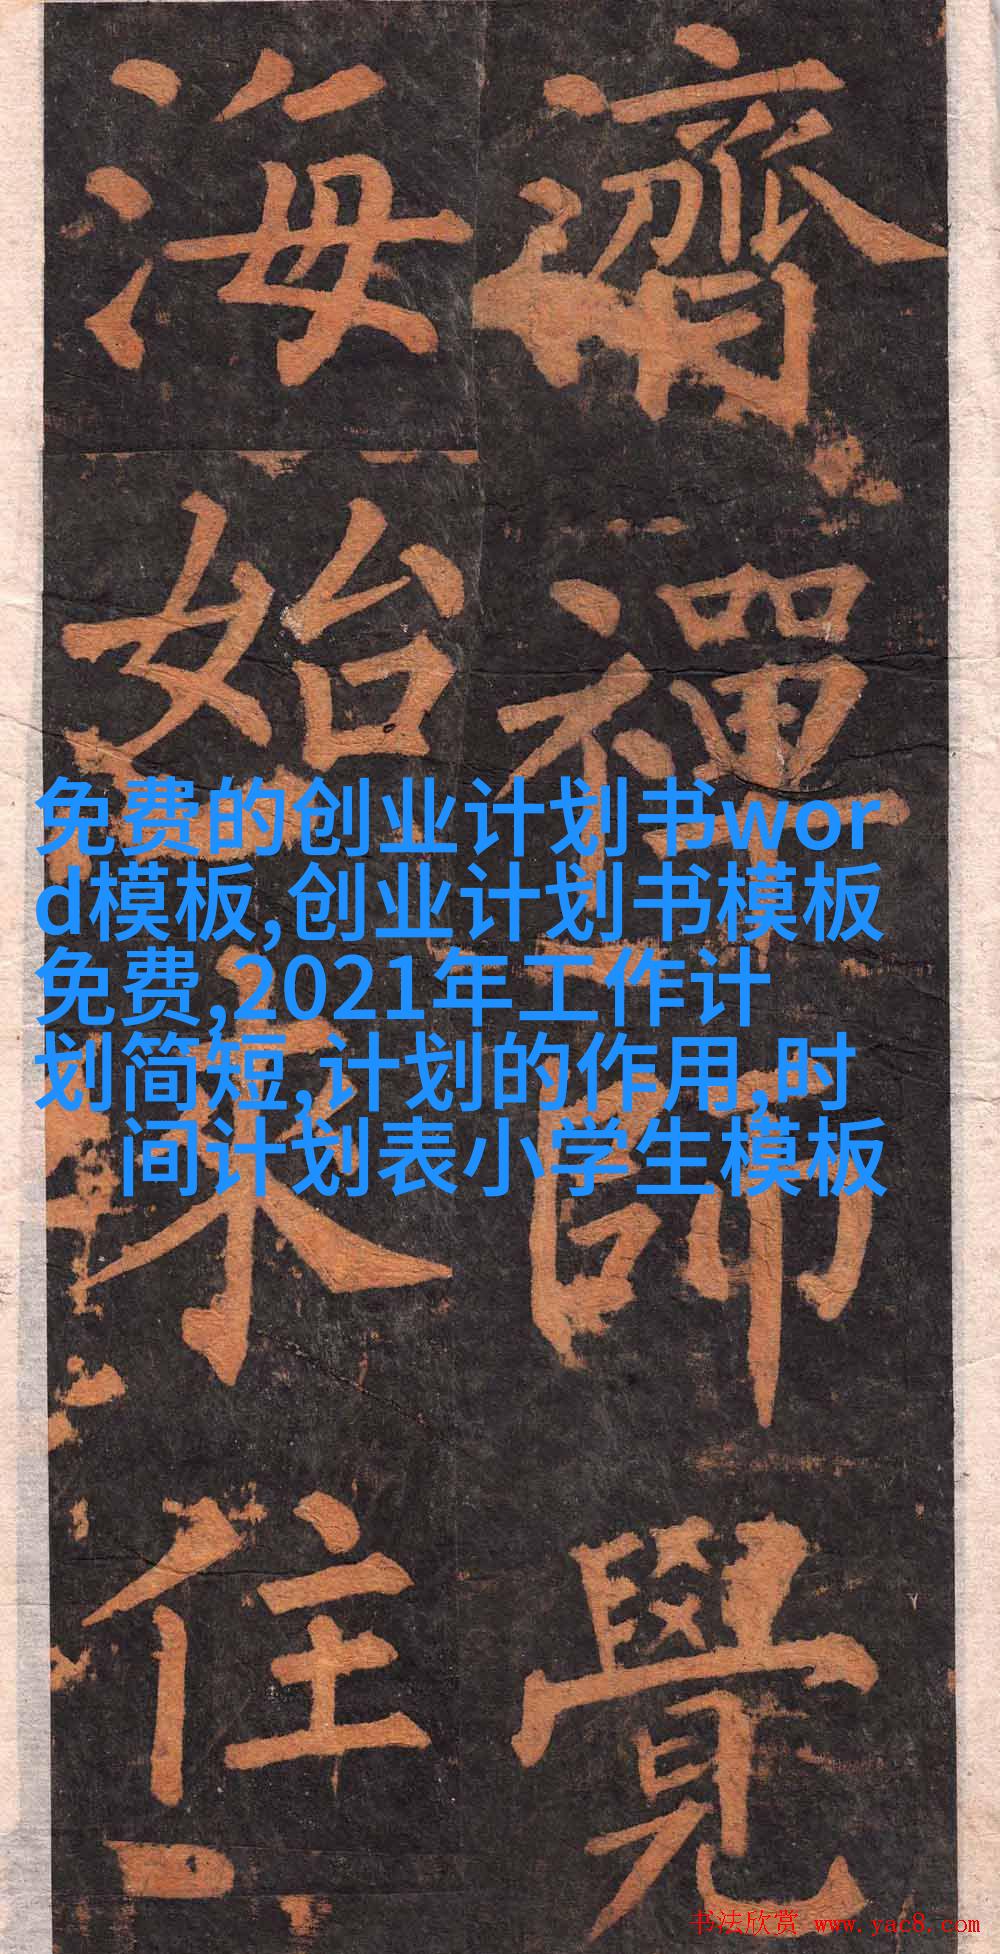 濟禪師覺
海始住
免费的创业计划书wor
d模板,创业计划书模板
免费,2021年工作计
划简短,计划的作用,时
间计划表小学生模板
书法欣赏 www.yac8.com